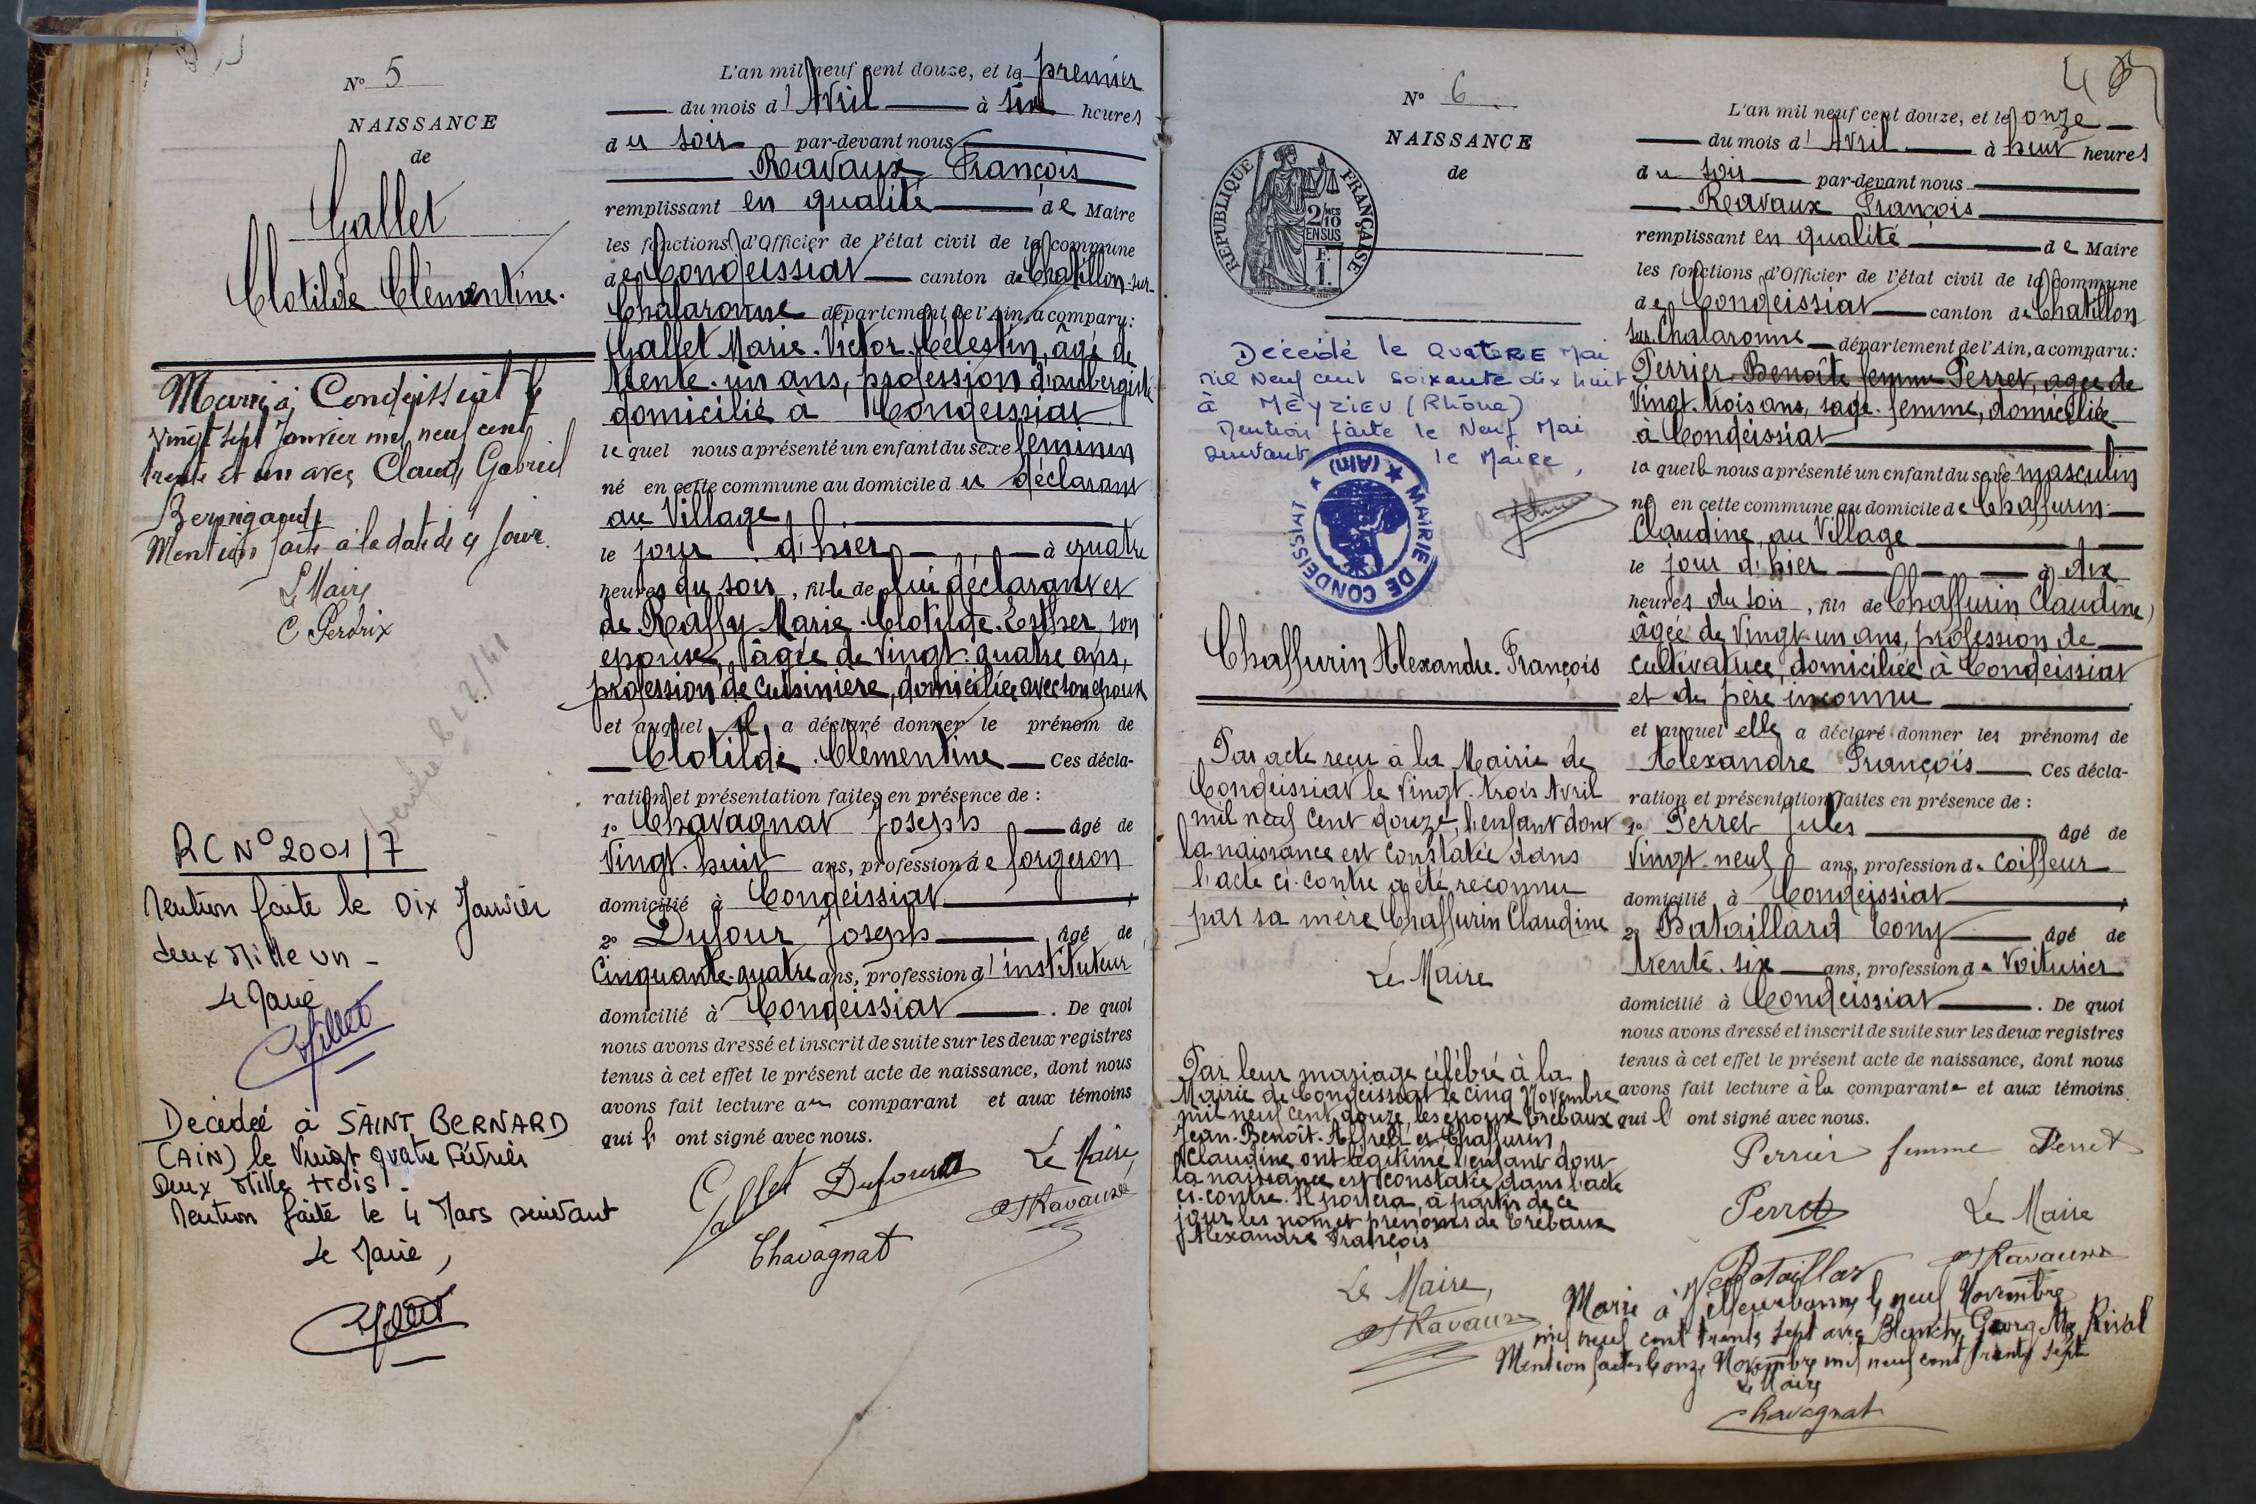 N° 5
NAISSANCE
de
Gallet
Clotilde Clémentine.
Marié à Condeissiat le
vingt sept Janvier mil neuf cent
trente et un avec Claude Gabriel
Mention faite à la date de ce jour.
Le Maire
C Perdrix
RC N° 2001/7
Mention faite le Dix Janvier
deux Mille un -
Le Maire
Décédée à SAINT BERNARD
(AIN) le Vingt quatre Février
Deux Mille trois.
Mention faite le 4 Mars suivant
Le Maire,
L'an mil neuf cent douze, et le premier
du mois d'Avril à six heures
du soir par-devant nous
Ravaux François
remplissant en qualité de Maire
les fonctions d'Officier de l'état civil de la commune
de Condeissiat canton de Chatillon-sur-
Chalaronne département de l'Ain, a comparu:
Gallet Marie-Victor-Célestin, âgé de
trente-un ans, profession d'aubergiste
domicilié à Condeissiat
lequel nous a présenté un enfant du sexe féminin
né en cette commune au domicile du déclarant
au Village
le jour d'hier à quatre
heures du soir, fille de lui déclarant et
de Raffy Marie-Clotilde-Esther, son
épouse, âgée de vingt-quatre ans,
profession de cuisinière, domiciliée avec son époux
et auquel il a déclaré donner le prénom de
Clotilde-Clémentine Ces décla-
ration et présentation faites en présence de :
1° Chavagnat Joseph âgé de
vingt-huit ans, profession de forgeron
domicilié à Condeissiat
2° Dufour Joseph âgé de
cinquante-quatre ans, profession d'instituteur
domicilié à Condeissiat. De quoi
nous avons dressé et inscrit de suite sur les deux registres
tenus à cet effet le présent acte de naissance, dont nous
avons fait lecture au comparant et aux témoins
qui l'ont signé avec nous.
Gallet Dufour Le Maire,
Chavagnat F Ravaux
N° 6
NAISSANCE
de
RÉPUBLIQUE FRANÇAISE
2/10 EN SUS
Décédé le QUATRE Mai
mil neuf cent soixante dix huit
à MEYZIEU (Rhône)
Mention faite le Neuf Mai
suivant le Maire,
MAIRIE DE CONDEISSIAT (Ain)
Chaffurin Alexandre-François
Par acte reçu à la Mairie de
Condeissiat le vingt-trois Avril
mil neuf cent douze, l'enfant dont
la naissance est constatée dans
l'acte ci-contre a été reconnu
par sa mère Chaffurin Claudine
Le Maire
Par leur mariage célébré à la
Mairie de Condeissiat le cinq Novembre
mil neuf cent douze, les époux Trébaux
Jean-Benoît-Alfred et Chaffurin
Claudine ont légitimé l'enfant dont
la naissance est constatée dans l'acte
ci-contre. Il portera, à partir de ce
jour les nom et prénoms de Trébaux
Alexandre François
Le Maire,
F Ravaux
L'an mil neuf cent douze, et le onze
du mois d'Avril à huit heures
du soir par-devant nous
Ravaux François
remplissant en qualité de Maire
les fonctions d'Officier de l'état civil de la commune
de Condeissiat canton de Chatillon
sur Chalaronne département de l'Ain, a comparu:
Perrier Benoîte femme Perret, âgée de
vingt-trois ans, sage-femme, domiciliée
à Condeissiat
laquelle nous a présenté un enfant du sexe masculin
né en cette commune au domicile de Chaffurin
Claudine, au Village
le jour d'hier à dix
heures du soir, fils de Chaffurin Claudine,
âgée de vingt-un ans, profession de
cultivatrice, domiciliée à Condeissiat
et de père inconnu
et auquel elle a déclaré donner les prénoms de
Alexandre François Ces décla-
ration et présentation faites en présence de :
1° Perret Jules âgé de
vingt-neuf ans, profession de coiffeur
domicilié à Condeissiat
2° Bataillard Tony âgé de
trente-six ans, profession de voiturier
domicilié à Condeissiat. De quoi
nous avons dressé et inscrit de suite sur les deux registres
tenus à cet effet le présent acte de naissance, dont nous
avons fait lecture à la comparante et aux témoins
qui l'ont signé avec nous.
Perrier femme Perret
Perret Le Maire
Bataillard F Ravaux
Marié à Villeurbanne le neuf Novembre
mil neuf cent trente sept avec Blanche Georgette Rival
Mention faite le onze Novembre mil neuf cent trente sept
Le Maire
Chavagnat